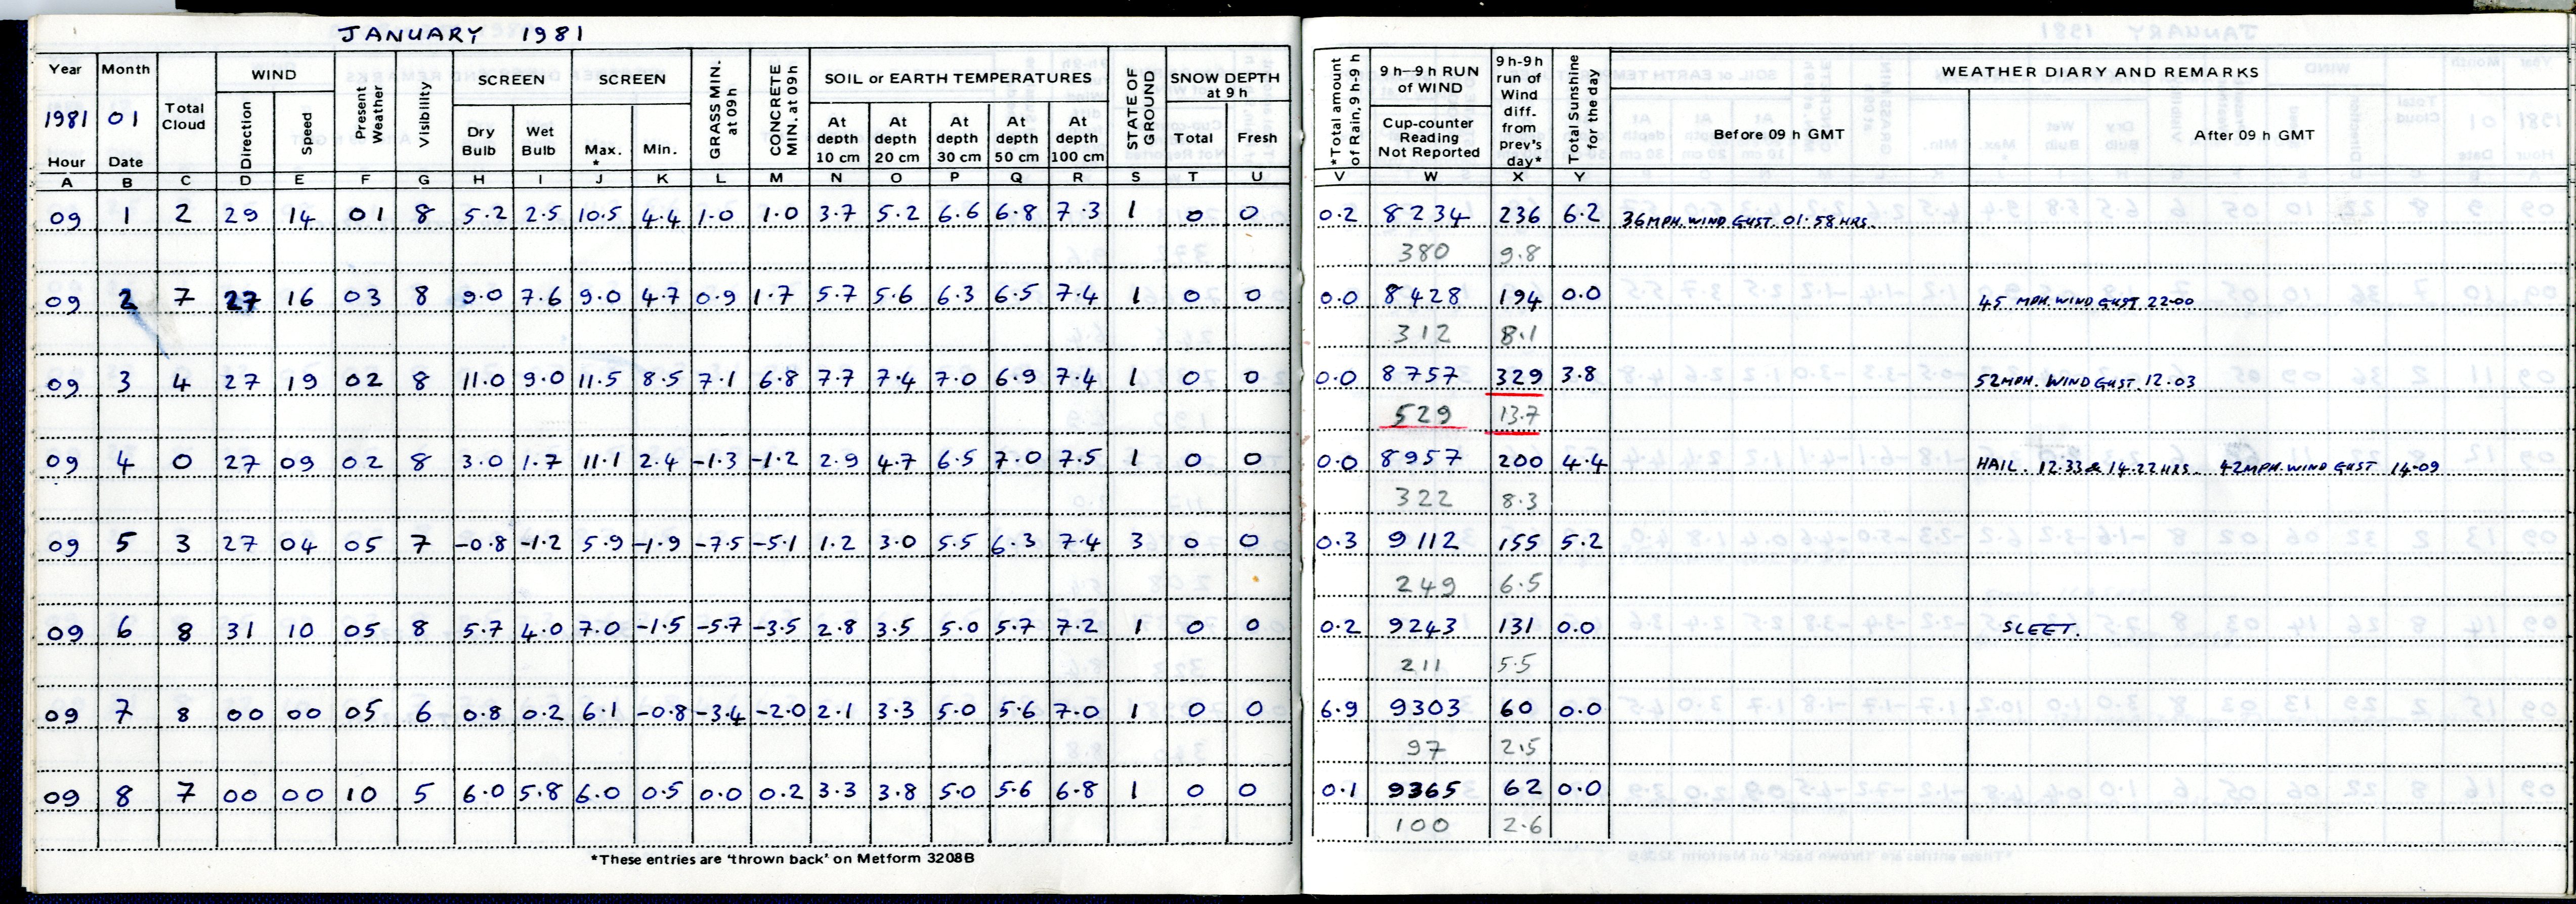 JANUARY 1981
Year Month Total Cloud WIND Present Weather Visibility SCREEN SCREEN GRASS MIN. at 09h CONCRETE MIN. at 09h SOIL or EARTH TEMPERATURES STATE OF GROUND SNOW DEPTH at 9 h *Total amount of Rain, 9 h-9 h 9 h–9 h RUN of WIND 9 h-9 h run of Wind diff. from prev's day* Total Sunshine for the day WEATHER DIARY AND REMARKS
1981 01 Direction Speed Dry Bulb Wet Bulb Max. * Min. At depth 10 cm At depth 20 cm At depth 30 cm At depth 50 cm At depth 100 cm Total Fresh Cup-counter Reading Not Reported Before 09 h GMT After 09 h GMT
Hour Date
A B C D E F G H I J K L M N O P Q R S T U V W X Y
09 1 2 29 14 01 8 5.2 2.5 10.5 4.4 1.0 1.0 3.7 5.2 6.6 6.8 7.3 1 0 0 0.2 8234 236 6.2 36MPH. WIND GUST. 01.58 HRS.
380 9.8
09 2 7 27 16 03 8 9.0 7.6 9.0 4.7 0.9 1.7 5.7 5.6 6.3 6.5 7.4 1 0 0 0.0 8428 194 0.0 45 MPH. WIND GUST 22.00
312 8.1
09 3 4 27 19 02 8 11.0 9.0 11.5 8.5 7.1 6.8 7.7 7.4 7.0 6.9 7.4 1 0 0 0.0 8757 329 3.8 52MPH. WIND GUST. 12.03
529 13.7
09 4 0 27 09 02 8 3.0 1.7 11.1 2.4 -1.3 -1.2 2.9 4.7 6.5 7.0 7.5 1 0 0 0.0 8957 200 4.4 HAIL. 12.33 & 14.22 HRS. 42MPH. WIND GUST 14-09
322 8.3
09 5 3 27 04 05 7 -0.8 -1.2 5.9 -1.9 -7.5 -5.1 1.2 3.0 5.5 6.3 7.4 3 0 0 0.3 9112 155 5.2
249 6.5
09 6 8 31 10 05 8 5.7 4.0 7.0 -1.5 -5.7 -3.5 2.8 3.5 5.0 5.7 7.2 1 0 0 0.2 9243 131 0.0 SLEET.
211 5.5
09 7 8 00 00 05 6 0.8 0.2 6.1 -0.8 -3.4 -2.0 2.1 3.3 5.0 5.6 7.0 1 0 0 6.9 9303 60 0.0
97 2.5
09 8 7 00 00 10 5 6.0 5.8 6.0 0.5 0.0 0.2 3.3 3.8 5.0 5.6 6.8 1 0 0 0.1 9365 62 0.0
100 2.6
*These entries are 'thrown back' on Metform 3208B